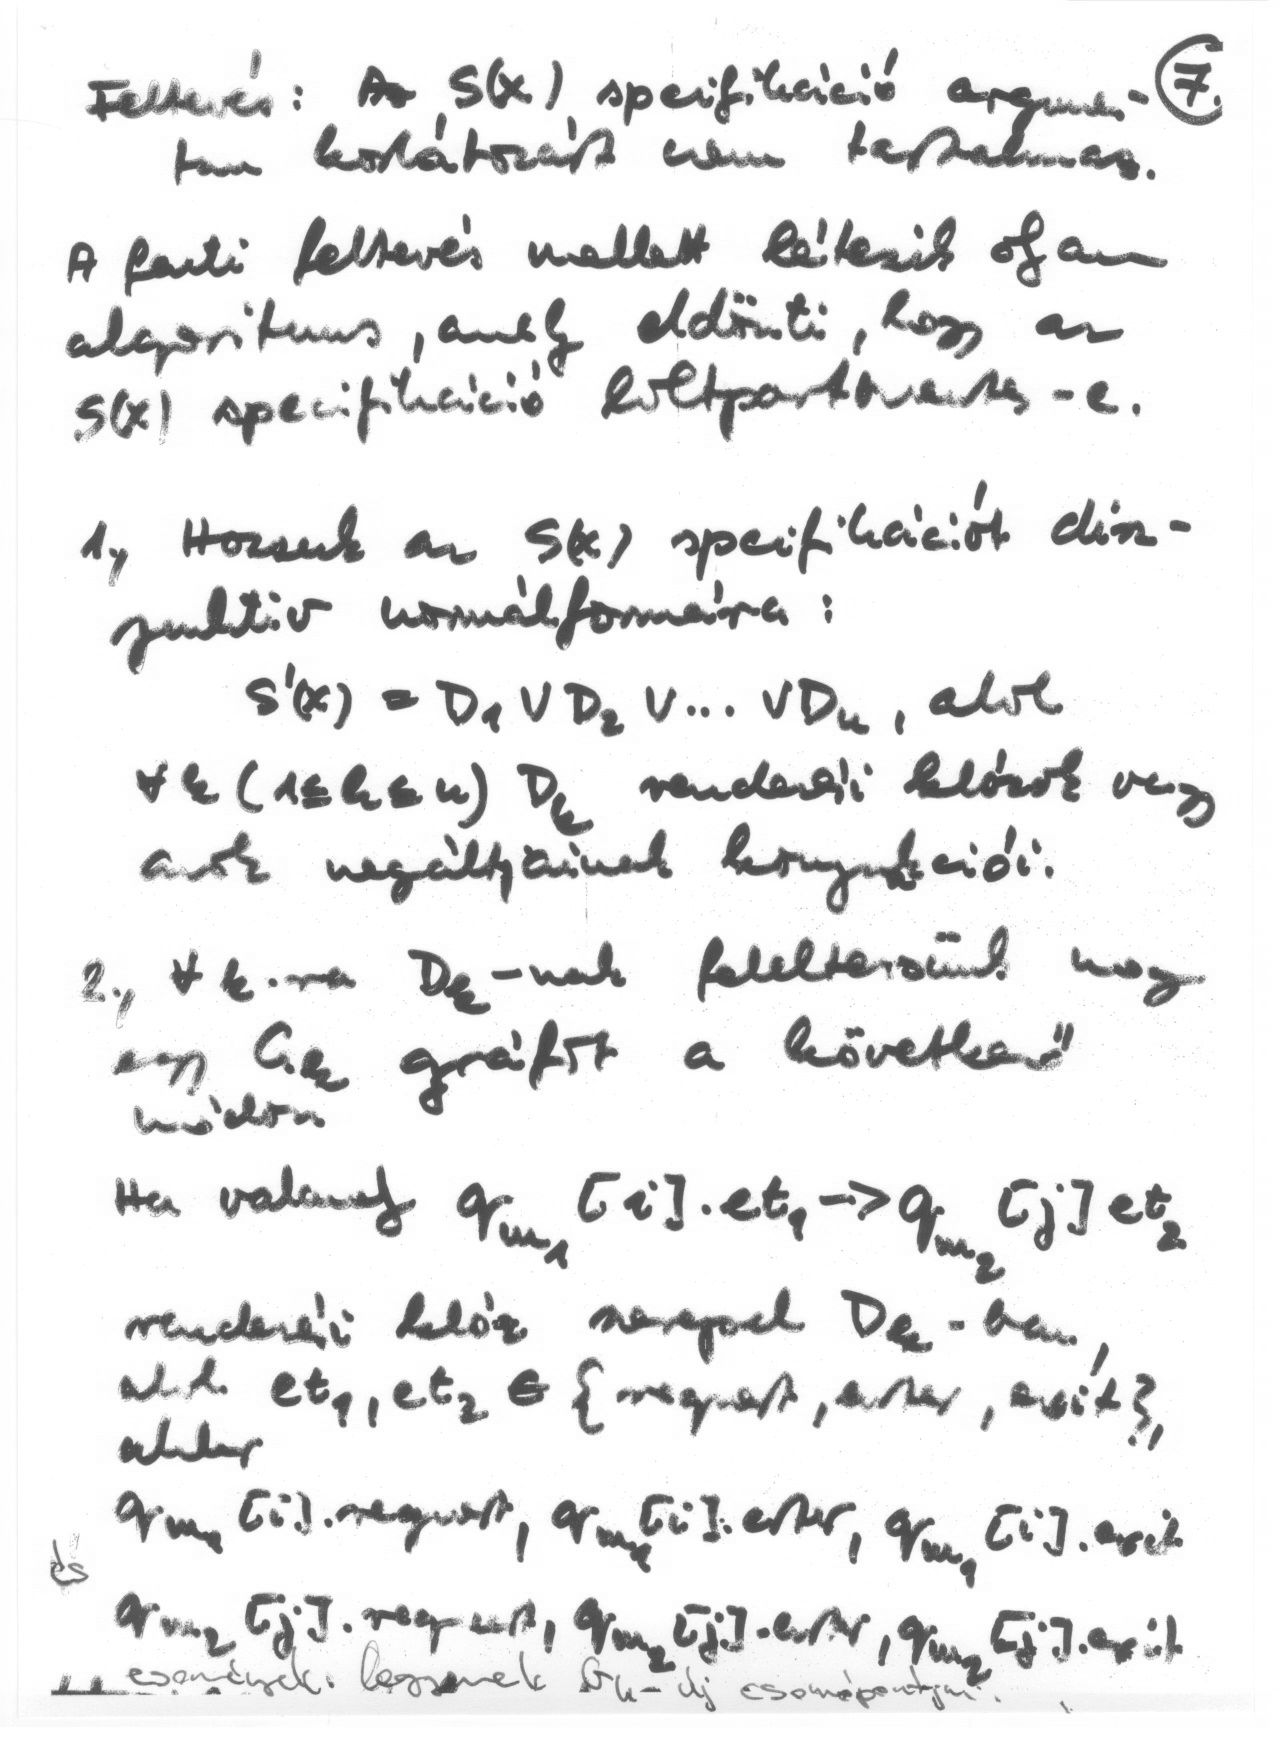 Feltevés: Az S(x) specifikáció argumen- 7.
tum korlátozást nem tartalmaz.
A fenti feltevés mellett létezik olyan
algoritmus, amely eldönti, hogy az
S(x) specifikáció holtpontmentes-e.
1., Hozzuk az S(x) specifikációt disz-
junktív normálformára:
S'(x) = D₁ ∨ D₂ ∨ ... ∨ Dₙ, ahol
∀k (1≤k≤n) Dₖ rendezési klózok vagy
azok negáltjainak konjunkciói.
2., ∀k-ra Dₖ-nak feleltessünk meg
egy Gₖ gráfot a következő
módon
Ha valamely qₘ₁[i].et₁ -> qₘ₂[j]et₂
rendezési klóz szerepel Dₖ-ban,
ahol et₁, et₂ ∈ {request, enter, exit},
akkor
qₘ₁[i].request, qₘ₁[i].enter, qₘ₁[i].exit
és
qₘ₂[j].request, qₘ₂[j].enter, qₘ₂[j].exit
események legyenek Gₖ-új csomópontjai.